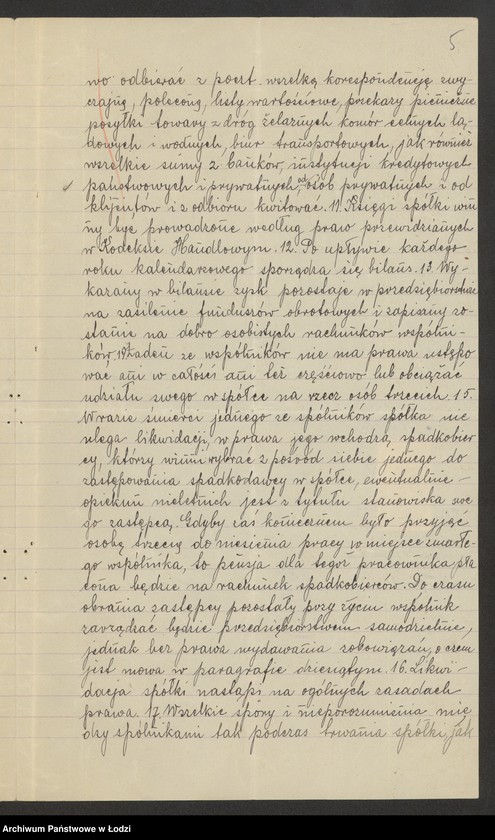 5
wo odbierać z poczt wszelką korespondencję zwy-
czajną, poleconą, listy wartościowe, przekazy pieniężne
posyłki towary z dróg żelaznych komór celnych lą-
dowych i wodnych, biur transportowych, jak również
wszelkie sumy z banków, instytucji kredytowych
państwowych i prywatnych, od osób prywatnych i od
klijentów i z odbioru kwitować. 11. Księgi spółki win
ny być prowadzone według praw przewidzianych
w Kodeksie Handlowym. 12. Po upływie każdego
roku kalendarzowego sporządza się bilans. 13. Wy-
kazany w bilansie zysk pozostaje w przedsiębiorstwie
na zasilenie funduszów obrotowych i zapisany zo-
stanie na dobro osobistych rachunków wspólni-
ków. 14. Żaden ze wspólników nie ma prawa ustępo
wać ani w całości ani też częściowo lub obciążać
udziału swego w spółce na rzecz osób trzecich. 15.
W razie śmierci jednego ze spólników spółka nie
ulega likwidacji, w prawa jego wchodzą spadkobier
cy, którzy winni wybrać z pośród siebie jednego do
zastępowania spadkodawcy w spółce, ewentualnie -
opiekun nieletnich jest z tytułu stanowiska swe
go zastępcą. Gdyby zaś koniecznem było przyjąć
osobę trzecią do niesienia pracy w miejsce zmarłe-
go wspólnika, to pensja dla tegoż pracownika pła
cona będzie na rachunek spadkobierców. Do czasu
obrania zastępcy pozostały przy życiu wspólnik
zarządzać będzie przedsiębiorstwem samodzielnie,
jednak bez prawa wydawania zobowiązań, o czem
jest mowa w paragrafie dziesiątym. 16. Likwi-
dacja spółki nastąpi na ogólnych zasadach
prawa. 17. Wszelkie spory i nieporozumienia mię
dzy spólnikami tak podczas trwania spółki, jak
Archiwum Państwowe w Łodzi